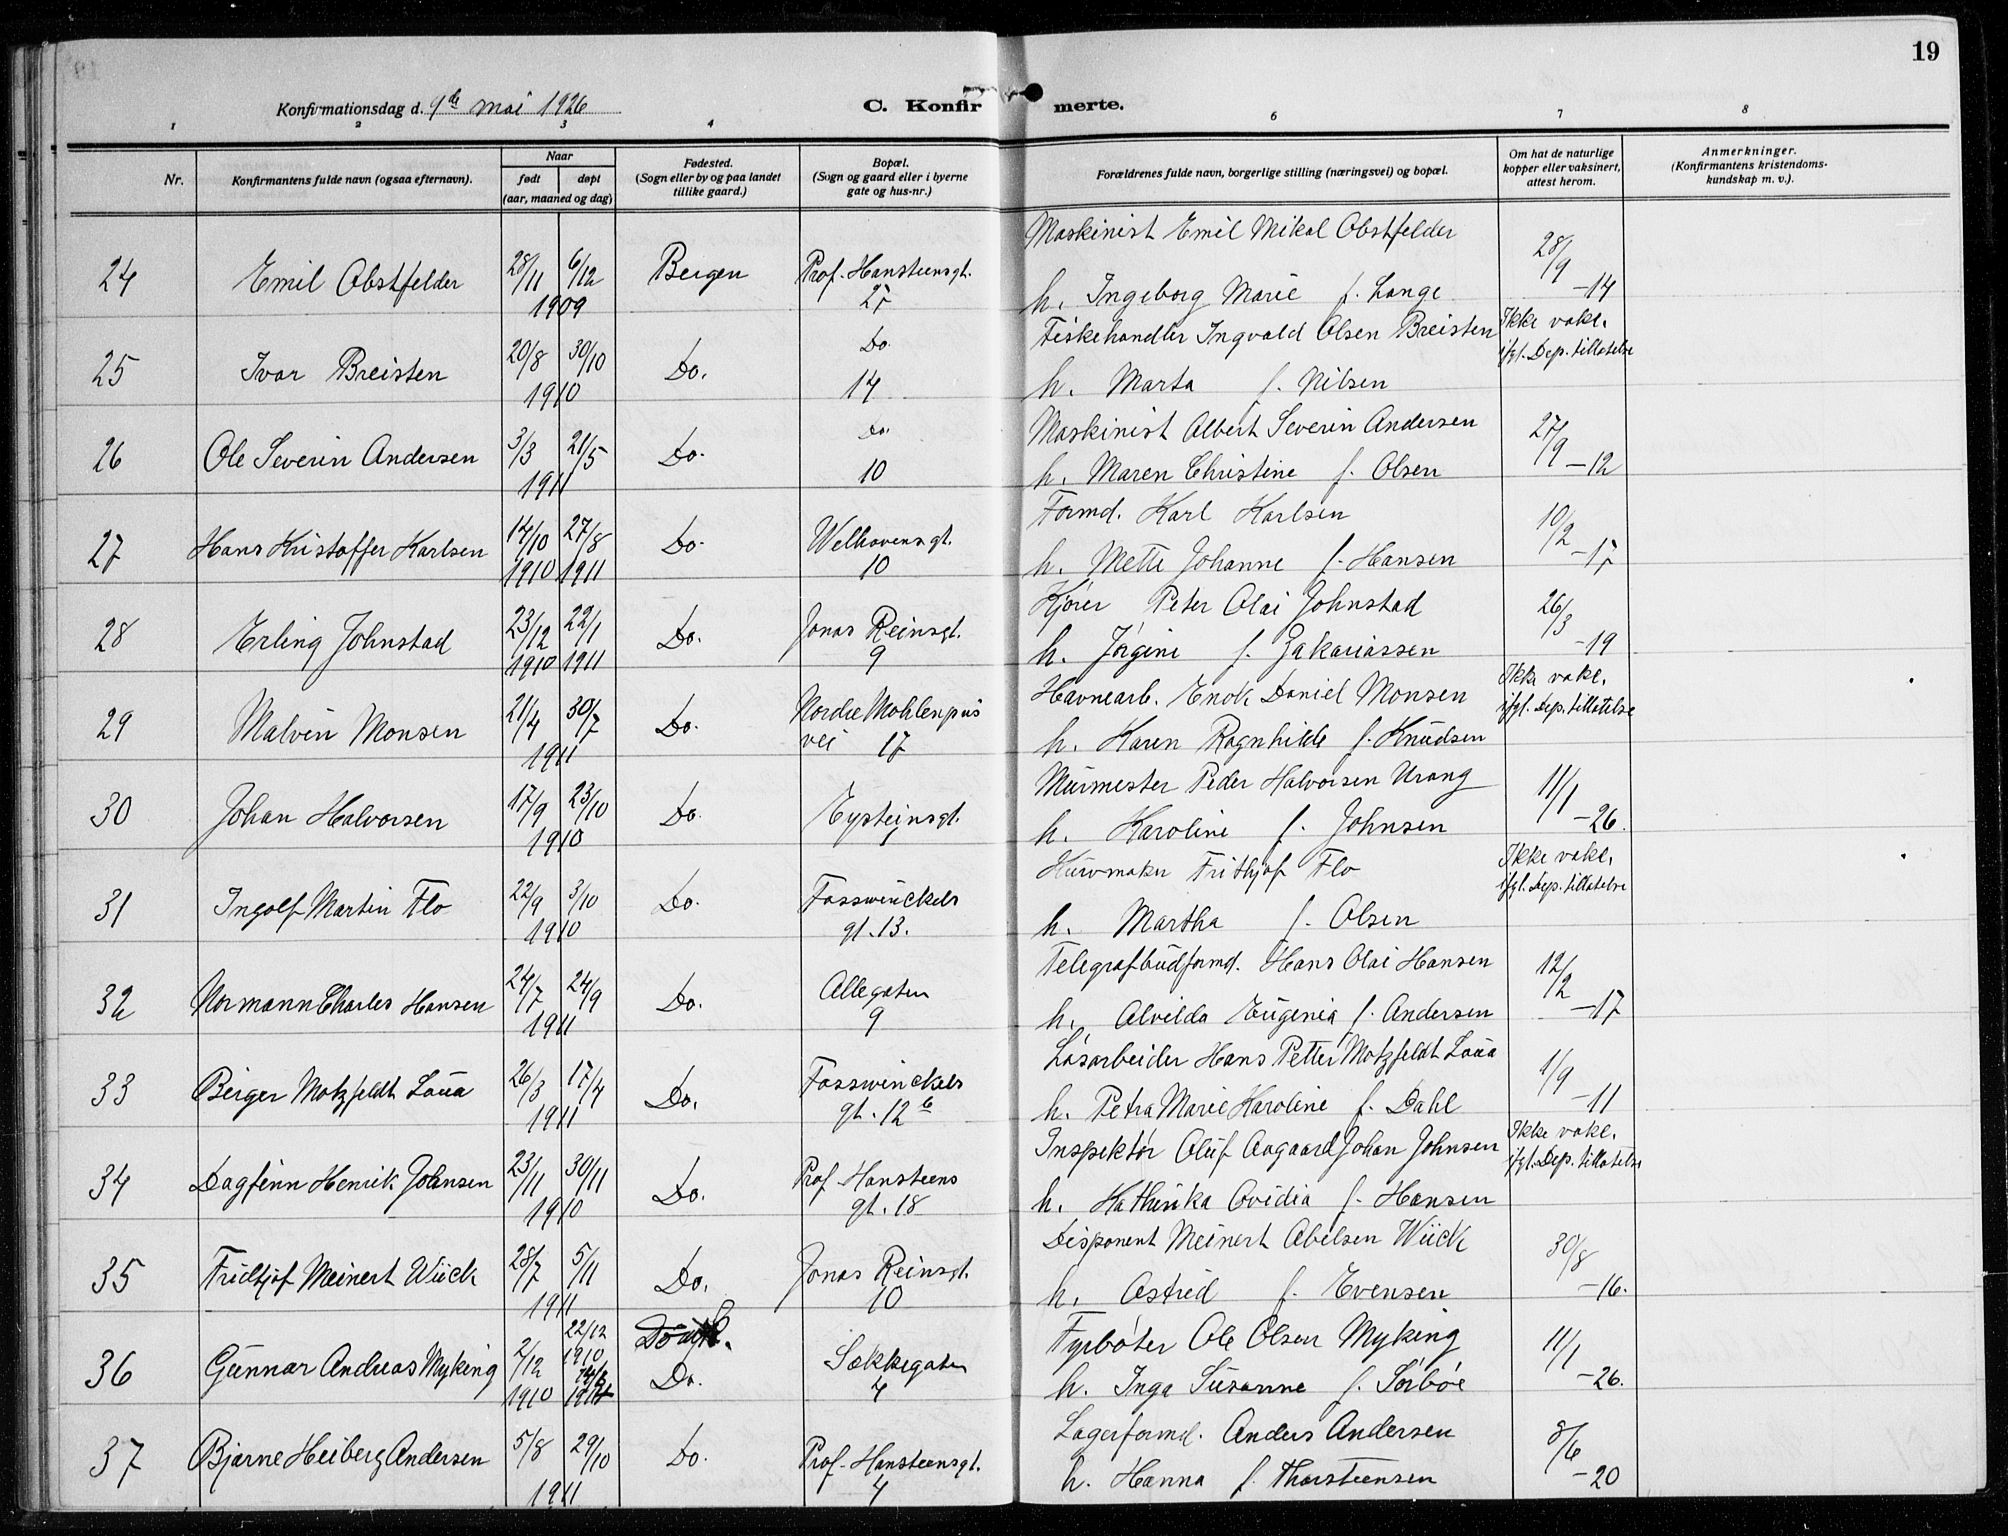 19
Konfirmationsdag d. 9de mai 1926
C. Konfirmerte.
1 2 3 4 6 7 8
Nr.
Konfirmantens fulde navn (ogsaa efternavn).
Naar
født døpt
(aar, maaned og dag)
Fødested.
(Sogn eller by og paa landet
tillike gaard.)
Bopæl.
(Sogn og gaard eller i byerne
gate og hus-nr.)
Forældrenes fulde navn, borgerlige stilling (næringsvei) og bopæl.
Om hat de naturlige
kopper eller vaksinert,
attest herom.
Anmerkninger.
(Konfirmantens kristendoms-
kundskap m. v.).
Maskinist Emil Mikal Obstfelder
24 Emil Obstfelder 28/11 6/12 Bergen Prof. Hansteensgt. 28/9
1909 27 h. Ingeborg Marie f. Lange -14
Fiskehandler Ingvald Olsen Breisten Ikke vakc.
25 Ivar Breisten 20/8 30/10 Do. Do ifgl. Dep. tillatelse
1910 14 h. Marta f. Nilsen
Maskinist Albert Severin Andersen
26 Ole Severin Andersen 3/3 21/5 Do. Do 27/9
1911 10 h. Maren Christine f. Olsen -12
Formd. Karl Karlsen
27 Hans Kristoffer Karlsen 14/10 27/8 Do. Welhavensgt. 10/2
1910 1911 10 h. Mette Johanne f. Hansen -17
Kjører Peter Olai Johnstad
28 Erling Johnstad 23/12 22/1 Do. Jonas Reinsgt. 26/3
1910 1911 9 h. Jörgine f. Zakariassen -19
Havnearb. Enok Daniel Monsen Ikke vakc.
29 Malvin Monsen 21/4 30/7 Do. Nordre Mohlenpris ifgl. Dep. tillatelse
1911 vei 17 h. Karen Ragnhilde f. Knudsen
Murmester Peder Halvorsen Urang
30 Johan Halvorsen 17/9 23/10 Do. Eysteinsgt. 11/1
1910 1 h. Karoline f. Johnsen -26.
Hurvmaker Frithjof Flo Ikke vakc.
31 Ingolf Martin Flo 22/9 3/10 Do. Fosswinckels ifgl. Dep. tillatelse
1910 gt. 13. h. Martha f. Olsen
Telegrafbudformd. Hans Olai Hansen
32 Normann Charles Hansen 24/7 24/9 Do. Allegaten 12/2
1911 9 h. Alvilda Eugenia f. Andersen -17
Løsarbeider Hans Petter Motzfeldt Loua
33 Birger Motzfeldt Loua 26/3 17/4 Do. Fosswinckels 1/9
1911 gt. 12 b h. Petra Marie Karoline f. Dahl -11
Inspektør Oluf Aagaard Johan Johnsen Ikke vakc.
34 Dagfinn Henrik Johnsen 23/11 30/11 Do. Prof. Hansteens ifgl. Dep. tillatelse
1910 gt. 18 h. Kathinka Ovidia f. Hansen
Disponent Meinert Abelsen Wiick
35 Fridtjof Meinert Wiick 28/7 5/11 Do. Jonas Reinsgt. 30/8
1911 10 h. Astrid f. Evensen -16.
22/12 Fyrbøter Ole Olsen Myking
36 Gunnar Andreas Myking 2/12 1910 Do. Sækkegaten 11/1
1910 1911 4 h. Inga Susanne f. Sörböe -26.
Lagerformd. Anders Andersen
37 Bjarne Heiberg Andersen 5/8 29/10 Do. Prof. Hansteensgt. 8/6
1911 4 h. Hanna f. Thorsteensen -20